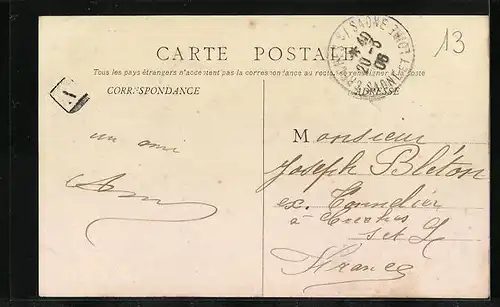 13
CARTE POSTALE
Tous les pays étrangers n'acceptent pas la correspondance au recto, se renseigner à la poste
CORRESPONDANCE
ADRESSE
SAONE ET LOIRE
20-6
06
1
un ami
Monsieur
Joseph Bléton
ex.
à
S et L
France